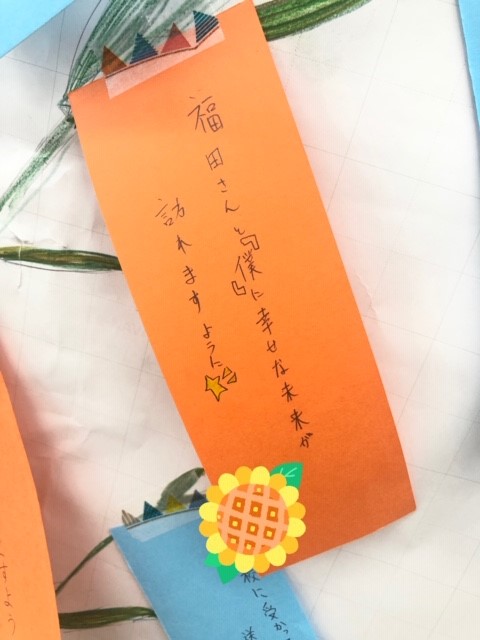 福田さんと『僕』に幸せな未来が
訪れますように
校に受かっ